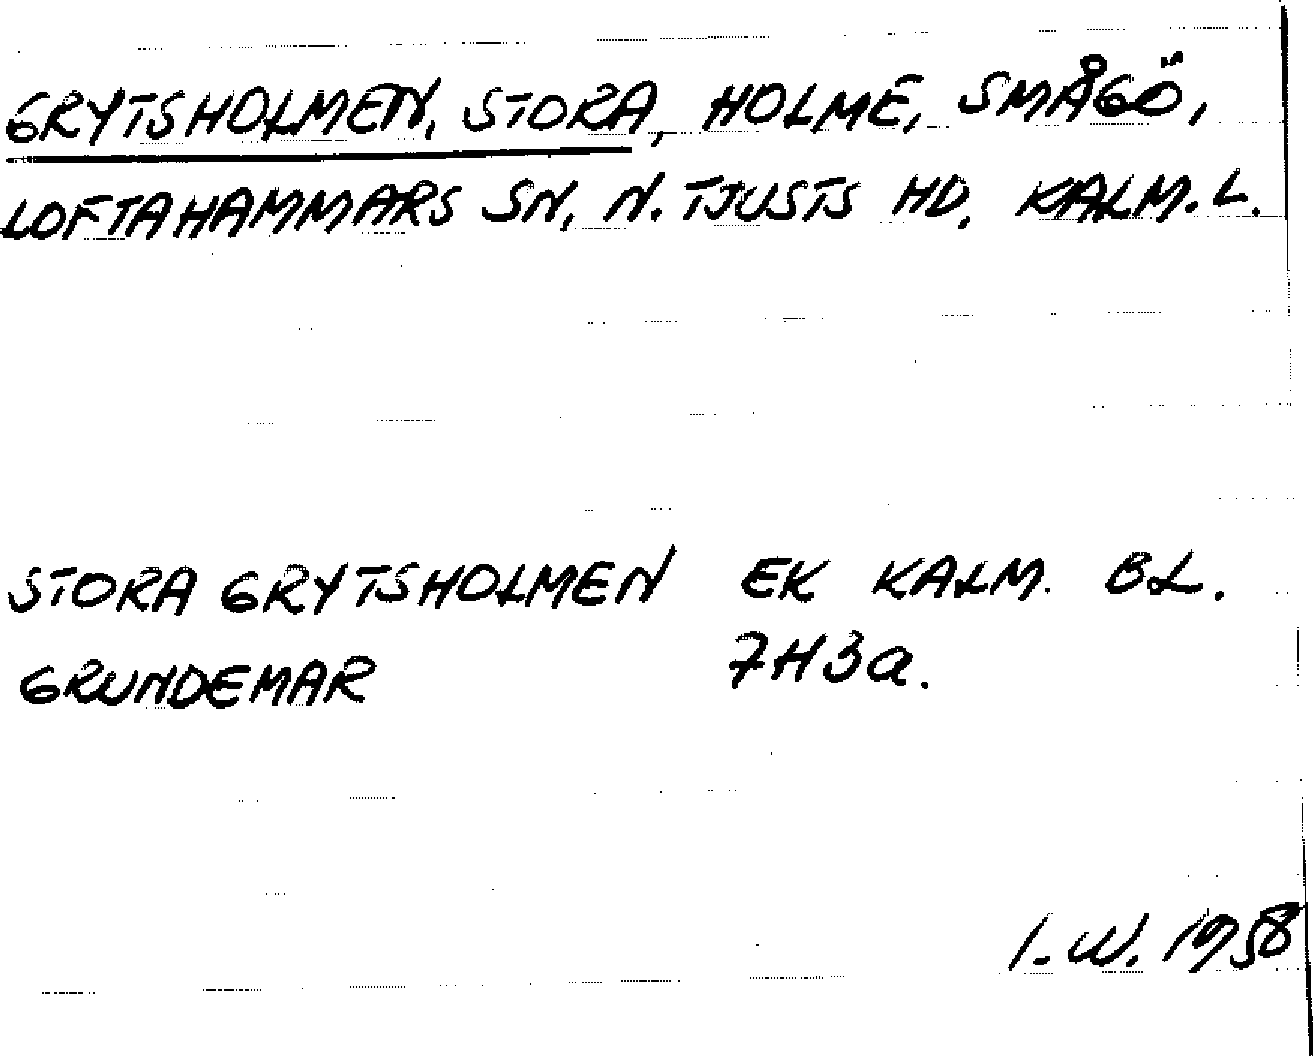 GRYTSHOLMEN, STORA, HOLME, SMÅGÖ,
LOFTAHAMMARS SN, N. TJUSTS HD. KALM. L.
STORA GRYTSHOLMEN EK KALM. BL.
GRUNDEMAR 7H3a.
I.W. 1958